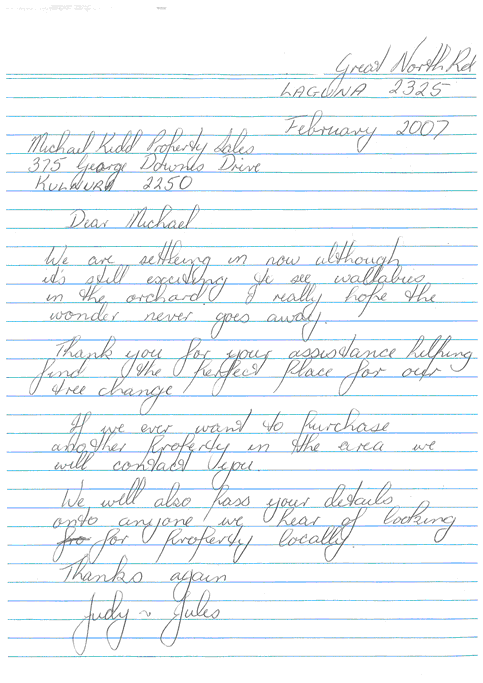 Great North Rd
LAGUNA 2325
February 2007
Michael Kidd Property Sales
375 George Downes Drive
KULNURA 2250
Dear Michael
We are settling in now although
it's still exciting to see wallabies
in the orchard. I really hope the
wonder never goes away.
Thank you for your assistance helping
find the perfect place for our
tree change
If we ever want to purchase
another property in the area we
will contact you.
We will also pass your details
onto anyone we hear of looking
for for property locally.
Thanks again
Judy ~ Jules